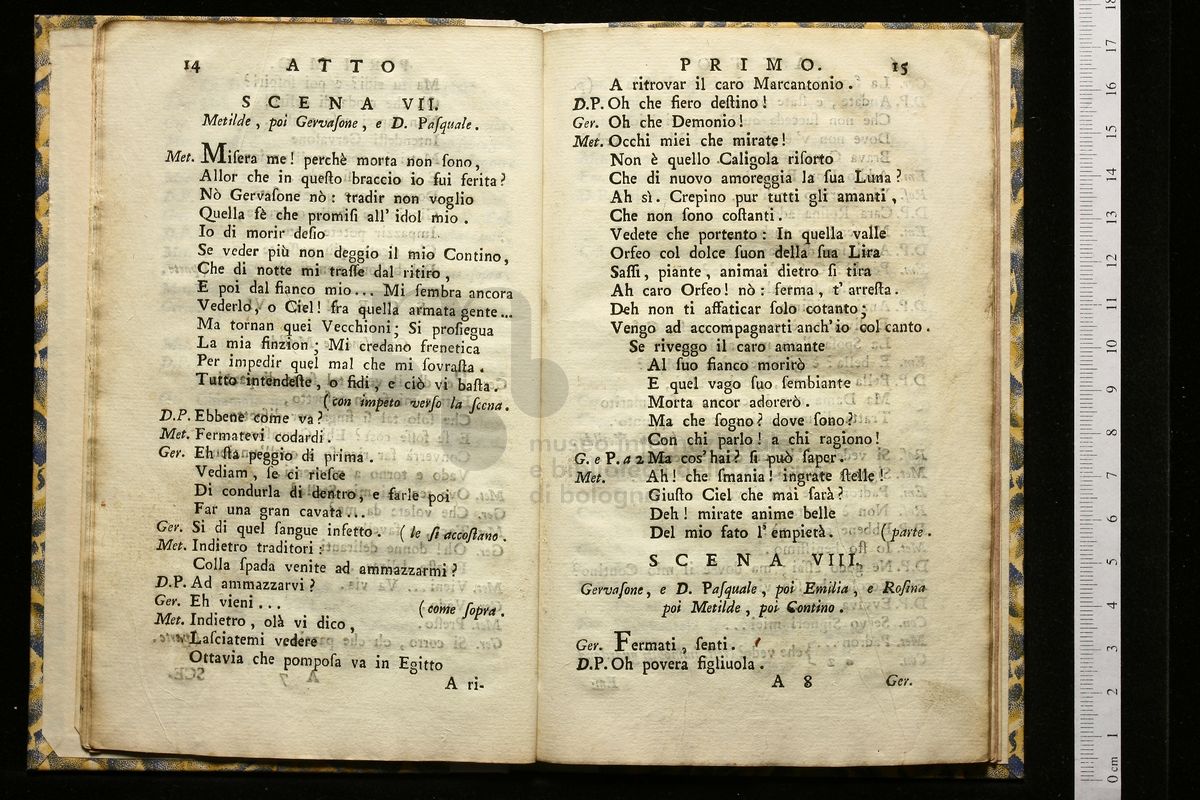 14 ATTO
SCENA VII.
Metilde, poi Gervaſone, e D. Paſquale.
Met. Miſera me! perchè morta non ſono,
Allor che in queſto braccio io fui ferita?
Nò Gervaſone nò: tradir non voglio
Quella fè che promiſi all' idol mio.
Io di morir deſio
Se veder più non deggio il mio Contino,
Che di notte mi traſſe dal ritiro,
E poi dal fianco mio... Mi ſembra ancora
Vederlo, o Ciel! fra quella armata gente...
Ma tornan quei Vecchioni; Si proſiegua
La mia finzion; Mi credano frenetica
Per impedir quel mal che mi ſovraſta.
Tutto intendeſte, o fidi, e ciò vi baſta.
(con impeto verſo la ſcena.
D.P. Ebbene come va?
Met. Fermatevi codardi.
Ger. Eh ſta peggio di prima.
Vediam, ſe ci rieſce
Di condurla di dentro, e farle poi
Far una gran cavata...
Ger. Si di quel ſangue infetto. (le ſi accoſtano.
Met. Indietro traditori:
Colla ſpada venite ad ammazzarmi?
D.P. Ad ammazzarvi?
Ger. Eh vieni... (come ſopra.
Met. Indietro, olà vi dico,
Laſciatemi vedere
Ottavia che pompoſa va in Egitto
A 7
A ri-
PRIMO. 15
A ritrovar il caro Marcantonio.
D.P. Oh che fiero deſtino!
Ger. Oh che Demonio!
Met. Occhi miei che mirate!
Non è quello Caligola riſorto
Che di nuovo amoreggia la ſua Luna?
Ah sì. Crepino pur tutti gli amanti,
Che non ſono coſtanti.
Vedete che portento: In quella valle
Orfeo col dolce ſuon della ſua Lira
Saſſi, piante, animai dietro ſi tira
Ah caro Orfeo! nò: ferma, t' arreſta.
Deh non ti affaticar ſolo cotanto;
Vengo ad accompagnarti anch' io col canto.
Se riveggo il caro amante
Al ſuo fianco morirò
E quel vago ſuo ſembiante
Morta ancor adorerò.
Ma che ſogno? dove ſono?
Con chi parlo! a chi ragiono!
G. e P. a 2 Ma cos' hai? ſi può ſaper.
Met. Ah! che ſmania! ingrate ſtelle!
Giuſto Ciel che mai ſarà?
Deh! mirate anime belle
Del mio fato l' empietà. (parte.
SCENA VIII.
Gervaſone, e D. Paſquale, poi Emilia, e Roſina
poi Metilde, poi Contino.
Ger. Fermati, ſenti.
D.P. Oh povera figliuola.
A 8 Ger.